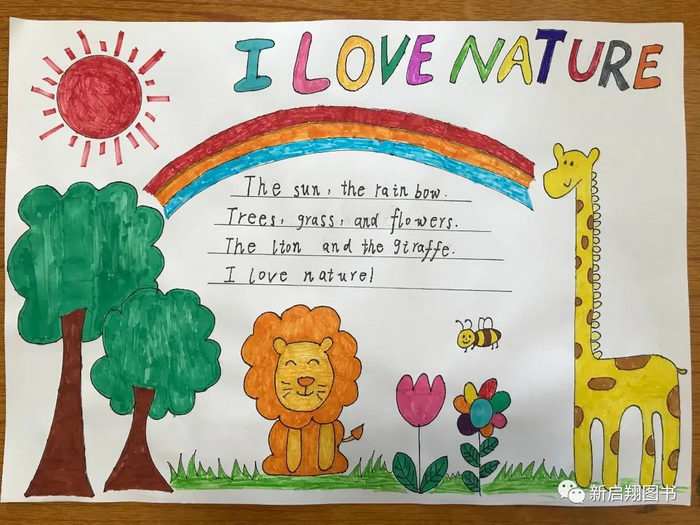 I LOVE NATURE
The sun, the rainbow.
Trees, grass, and flowers.
The lion and the giraffe.
I love nature!
新启翔图书